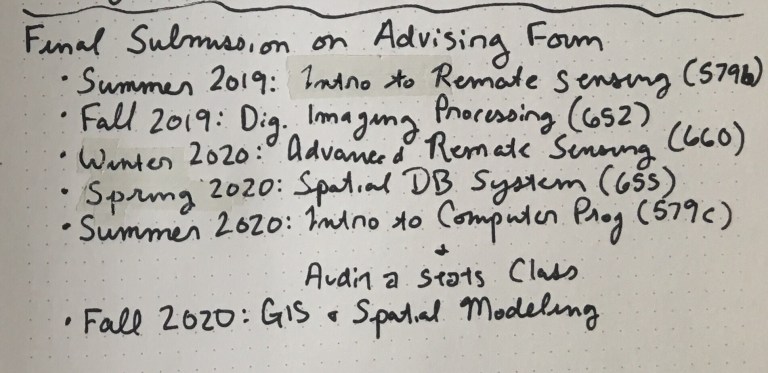 Final Submission on Advising Form
• Summer 2019: Intro to Remote Sensing (579b)
• Fall 2019: Dig. Imaging Processing (652)
• Winter 2020: Advanced Remote Sensing (660)
• Spring 2020: Spatial DB System (655)
• Summer 2020: Intro to Computer Prog (579c)
+
Audit a Stats Class
• Fall 2020: GIS & Spatial Modeling